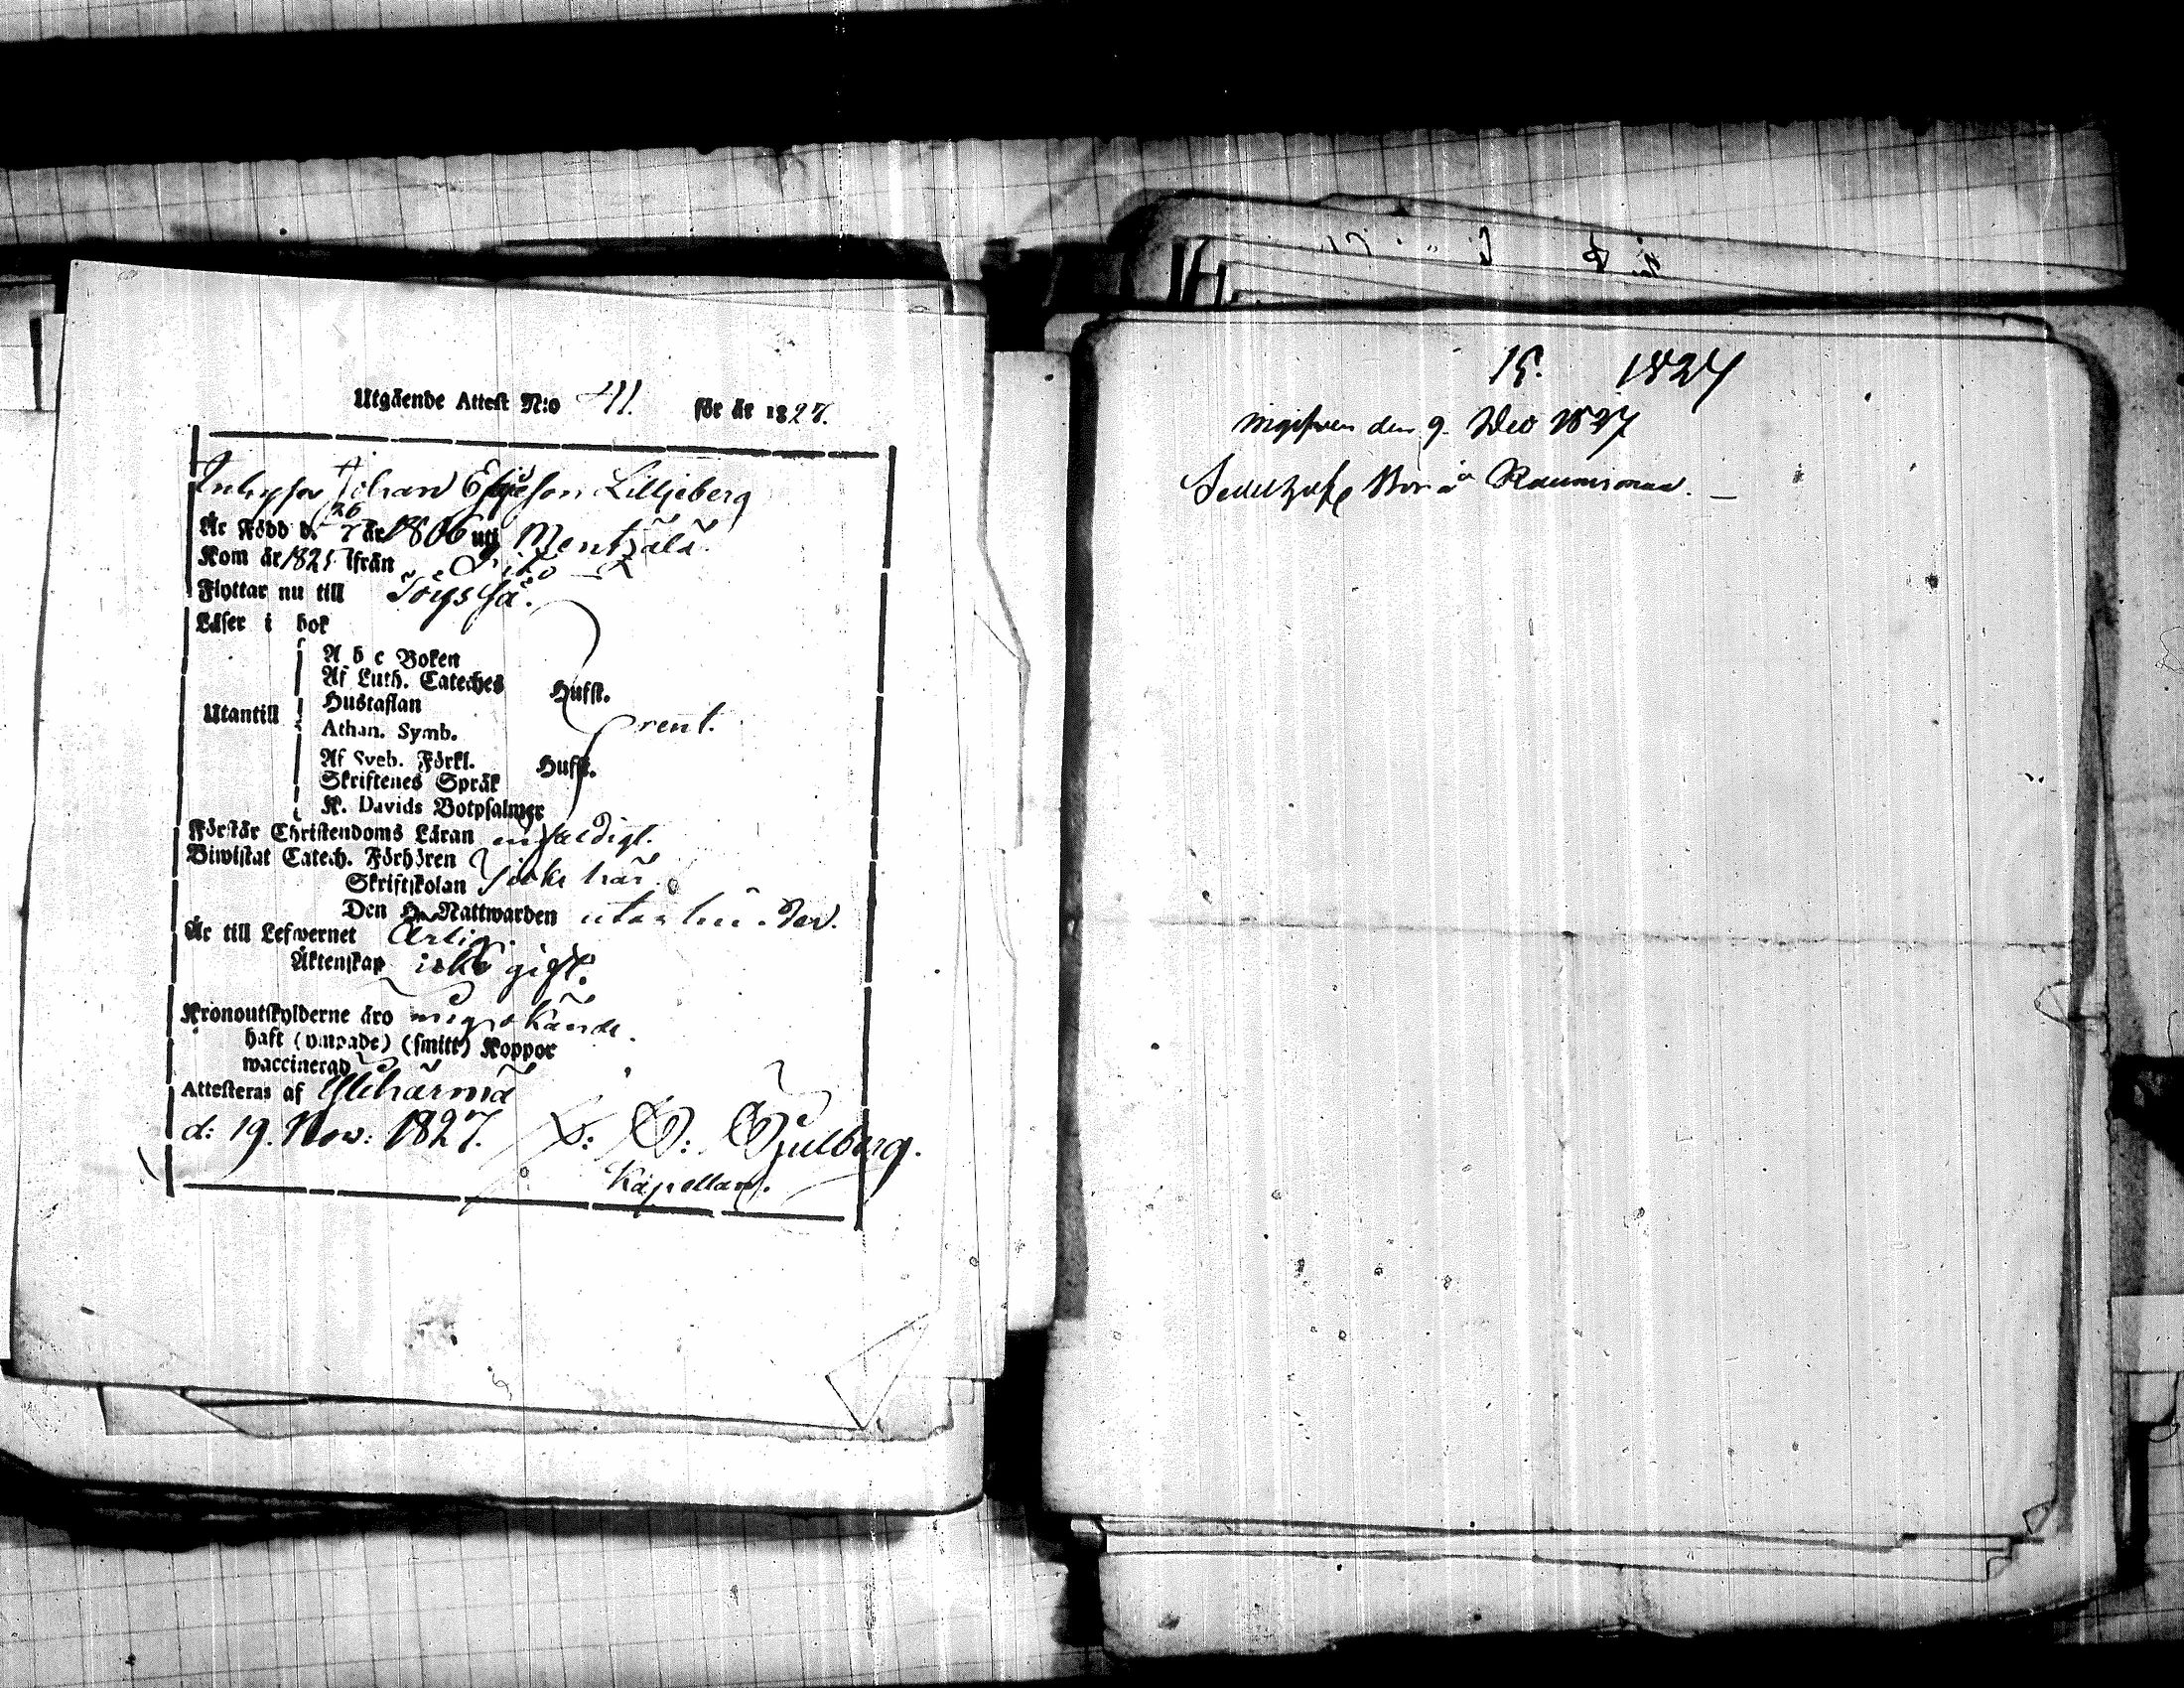 Utgående Attest N:o 411. för år 1827.
Johan Lilljeberg
Är Född d. 26/7 år 1806 uti Mentzälä.
Kom år 1825 ifrån Dito
Flyttar nu till
Läser i bok
A b c Boken
Af Luth. Cateches Hufst.
Hustaflan
Utantill
Athan. Symb. rent.
Af Sveb. Förkl. Hufst.
Skriftenes Språk
K. Davids Botpsalmer
Förstår Christendoms Läran enfaldigt.
Biwistat Catech. Förhören
Skriftskolan icke här
Den H. Nattwarden
Är till Lefwernet Ärlig.
Äktenskap icke gift.
Kronoutskylderne äro mig okände.
haft (vaccinerade) (smitt) Koppor
waccinerad
Attesteras af Ylihärmä
d: 19. Nov: 1827.
Kapellan.
15. 1827
ingifven den 9. Dec 1827